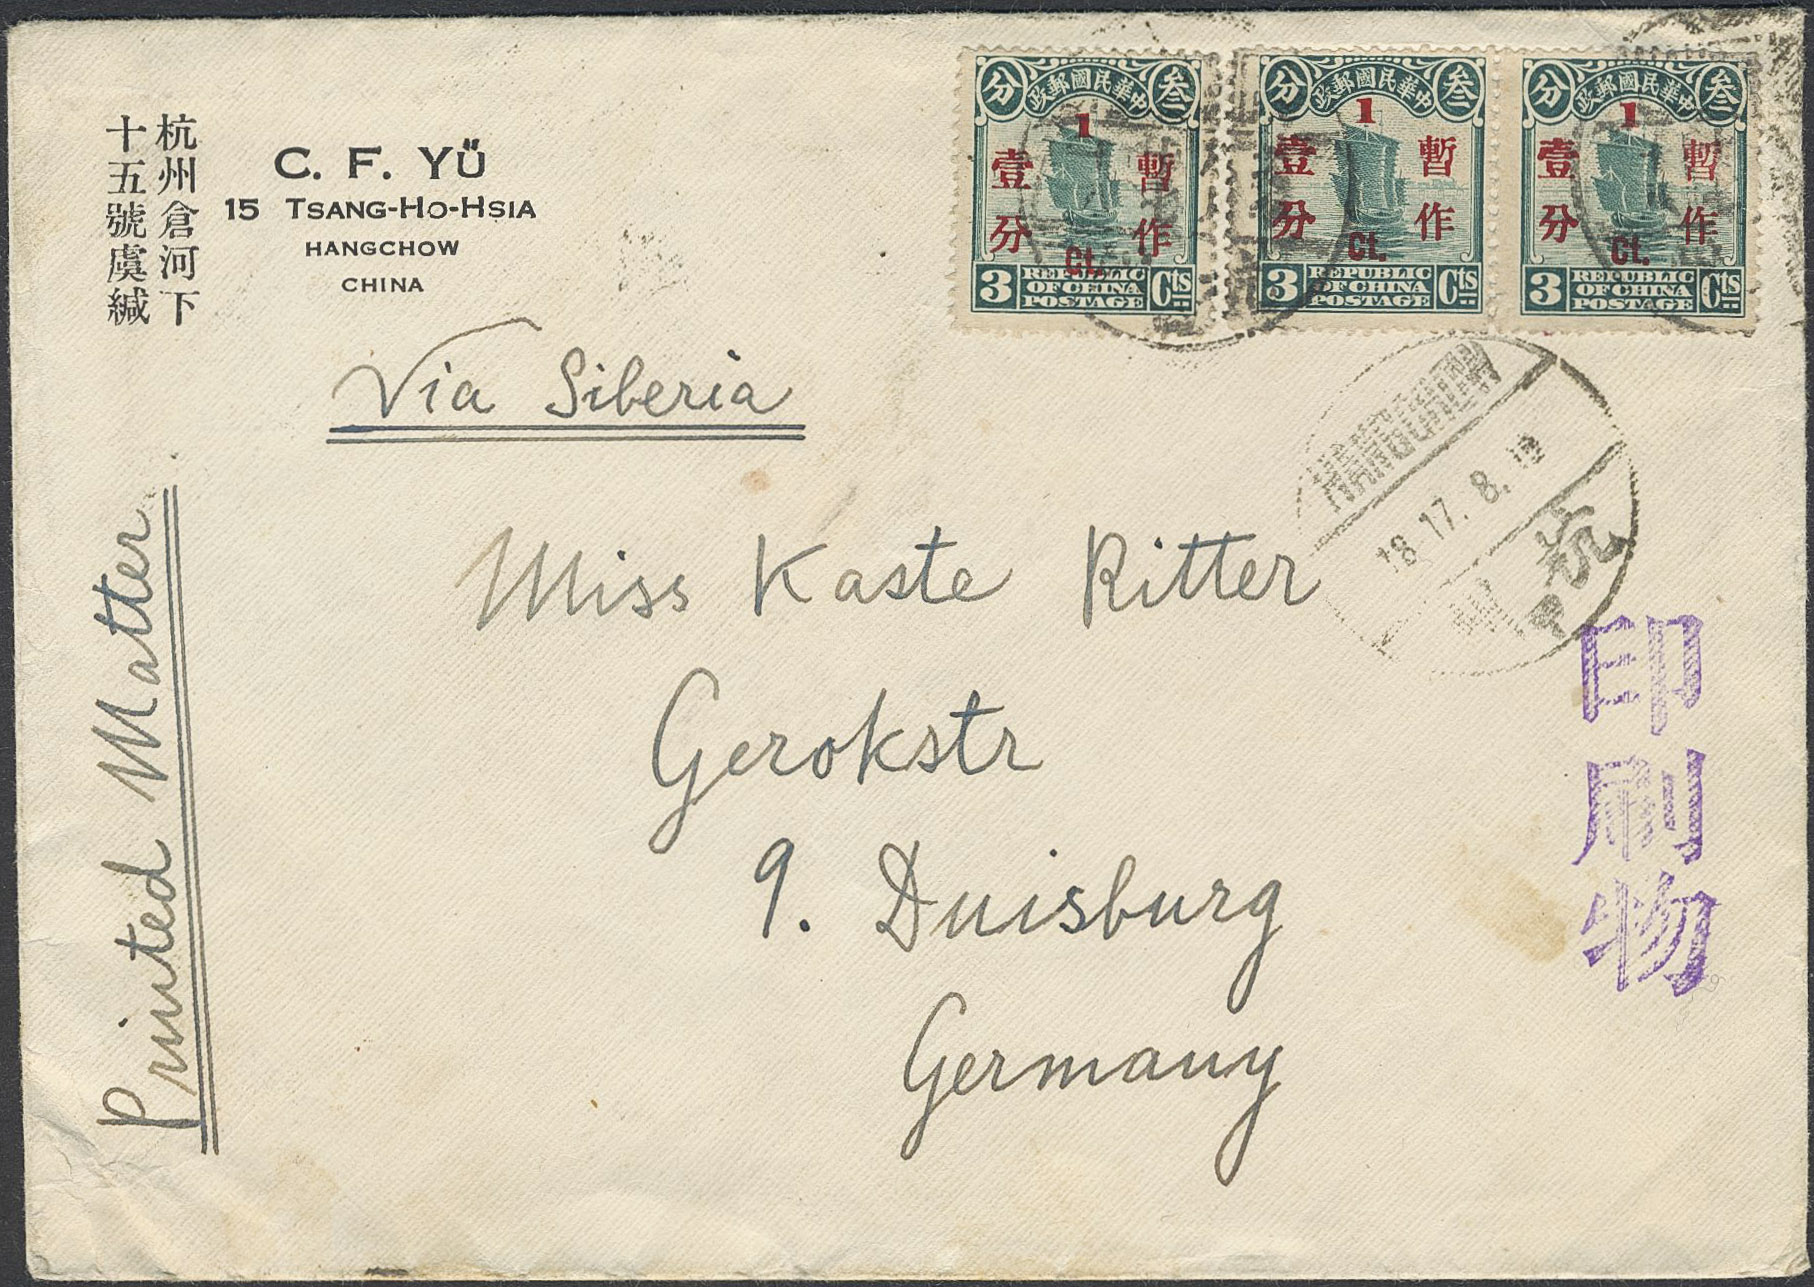 杭州倉河下
十五號虞緘
C. F. YÜ
15 TSANG-HO-HSIA
HANGCHOW
CHINA
中華民國郵政
叁
分
1
暫作
壹分
Ct.
3 REPUBLIC OF CHINA POSTAGE Cts
中華民國郵政
叁
分
1
暫作
壹分
Ct.
3 REPUBLIC OF CHINA POSTAGE Cts
中華民國郵政
叁
分
1
暫作
壹分
Ct.
3 REPUBLIC OF CHINA POSTAGE Cts
Via Siberia
HANGCHOW
18 17. 8.
杭州
Printed Matter
Miss Kaste Ritter
Gerokstr
9. Duisburg
Germany
印刷物